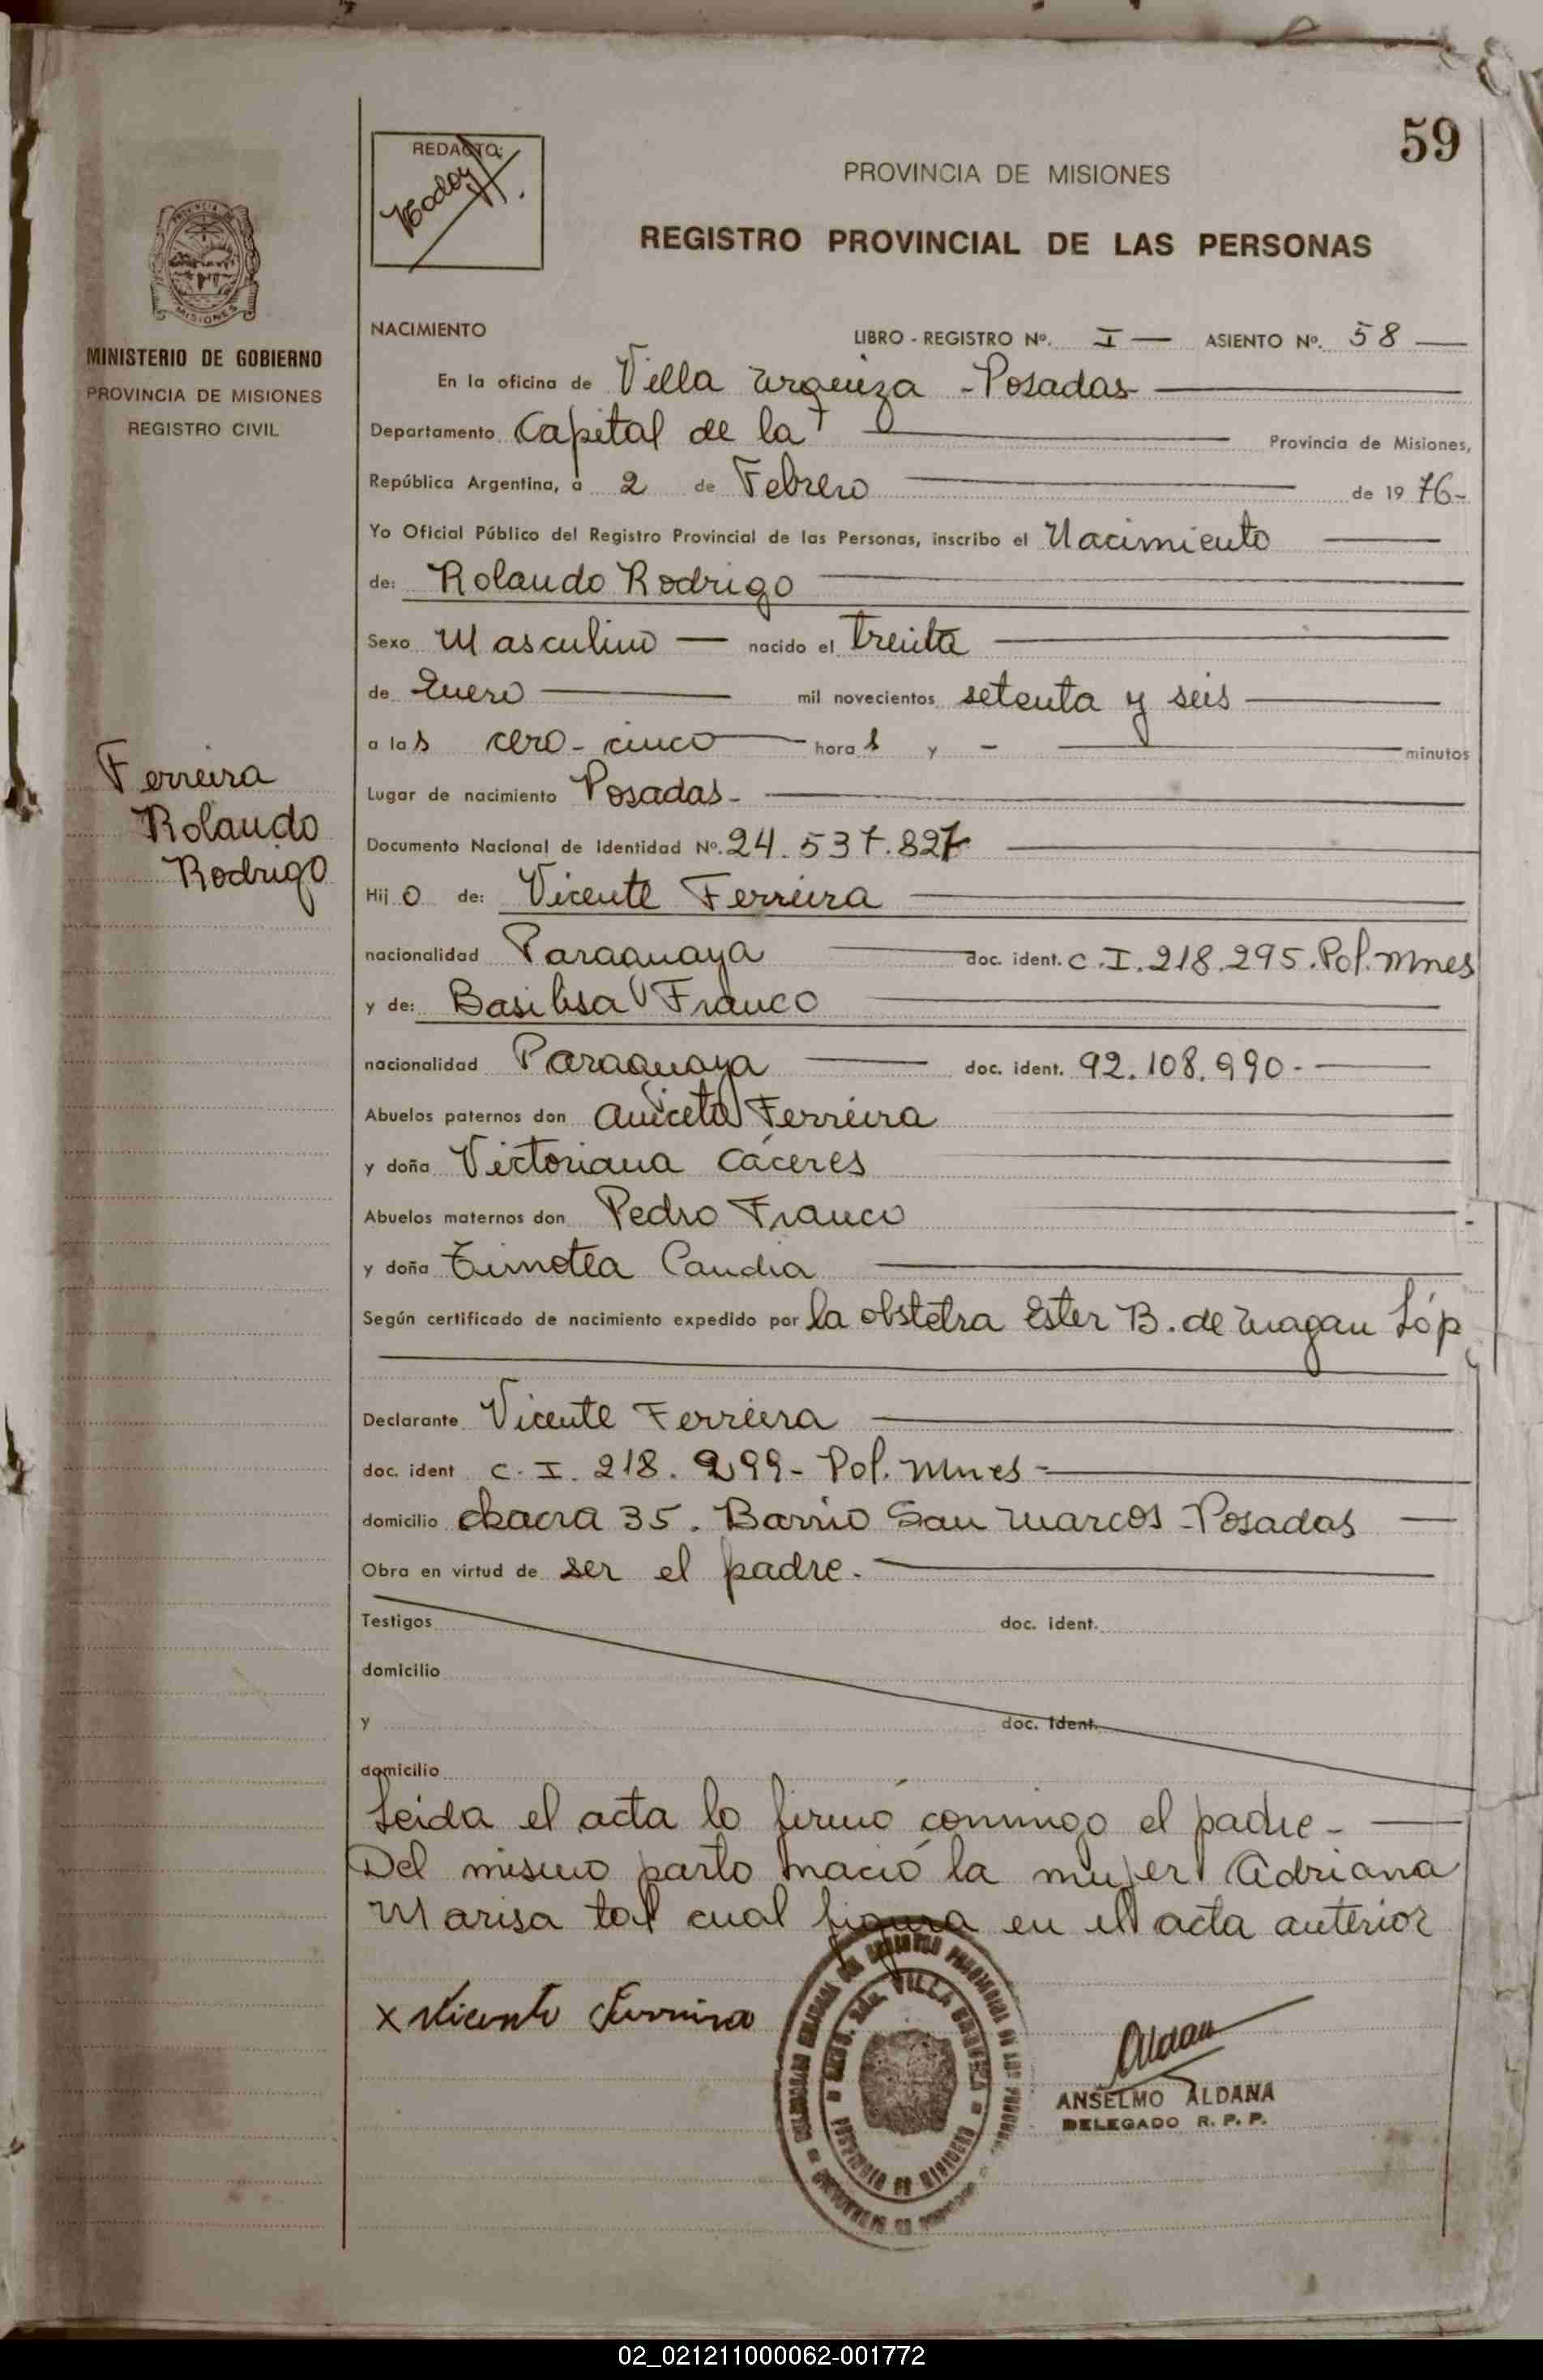 59
REDACTO:
PROVINCIA DE MISIONES
REGISTRO PROVINCIAL DE LAS PERSONAS
MISIONES
MINISTERIO DE GOBIERNO
PROVINCIA DE MISIONES
REGISTRO CIVIL
Ferreira
Rolando
Rodrigo
NACIMIENTO LIBRO - REGISTRO Nº. I — ASIENTO Nº. 58 —
En la oficina de Villa Urquiza - Posadas
Departamento Capital de la Provincia de Misiones,
República Argentina, a 2 de Febrero de 1976-
Yo Oficial Público del Registro Provincial de las Personas, inscribo el Nacimiento
de: Rolando Rodrigo
Sexo Masculino — nacido el treinta
de Enero mil novecientos setenta y seis
a las cero - cinco horas y - minutos
Lugar de nacimiento Posadas-
Documento Nacional de Identidad Nº. 24.537.827
Hijo de: Vicente Ferreira
nacionalidad Paraguaya doc. ident. C.I. 218.295. Pol. Mnes
y de: Basilisa Franco
nacionalidad Paraguaya doc. ident. 92.108.990.-
Abuelos paternos don Aniceto Ferreira
y doña Victoriana Cáceres
Abuelos maternos don Pedro Franco
y doña Timotea Candia
Según certificado de nacimiento expedido por la obstetra Ester B. de Magan Lóp
Declarante Vicente Ferreira
doc. ident C. I. 218.299- Pol. Mnes-
domicilio chacra 35. Barrio San Marcos - Posadas
Obra en virtud de ser el padre.
Testigos doc. ident.
domicilio
y doc. ident.
domicilio
Leida el acta lo firmó conmigo el padre-
Del mismo parto nació la mujer Adriana
Marisa tal cual figura en el acta anterior
x Vicente Ferreira
VILLA URQUIZA
PROVINCIA DE MISIONES
Aldana
ANSELMO ALDANA
DELEGADO R. P. P.
02_021211000062-001772